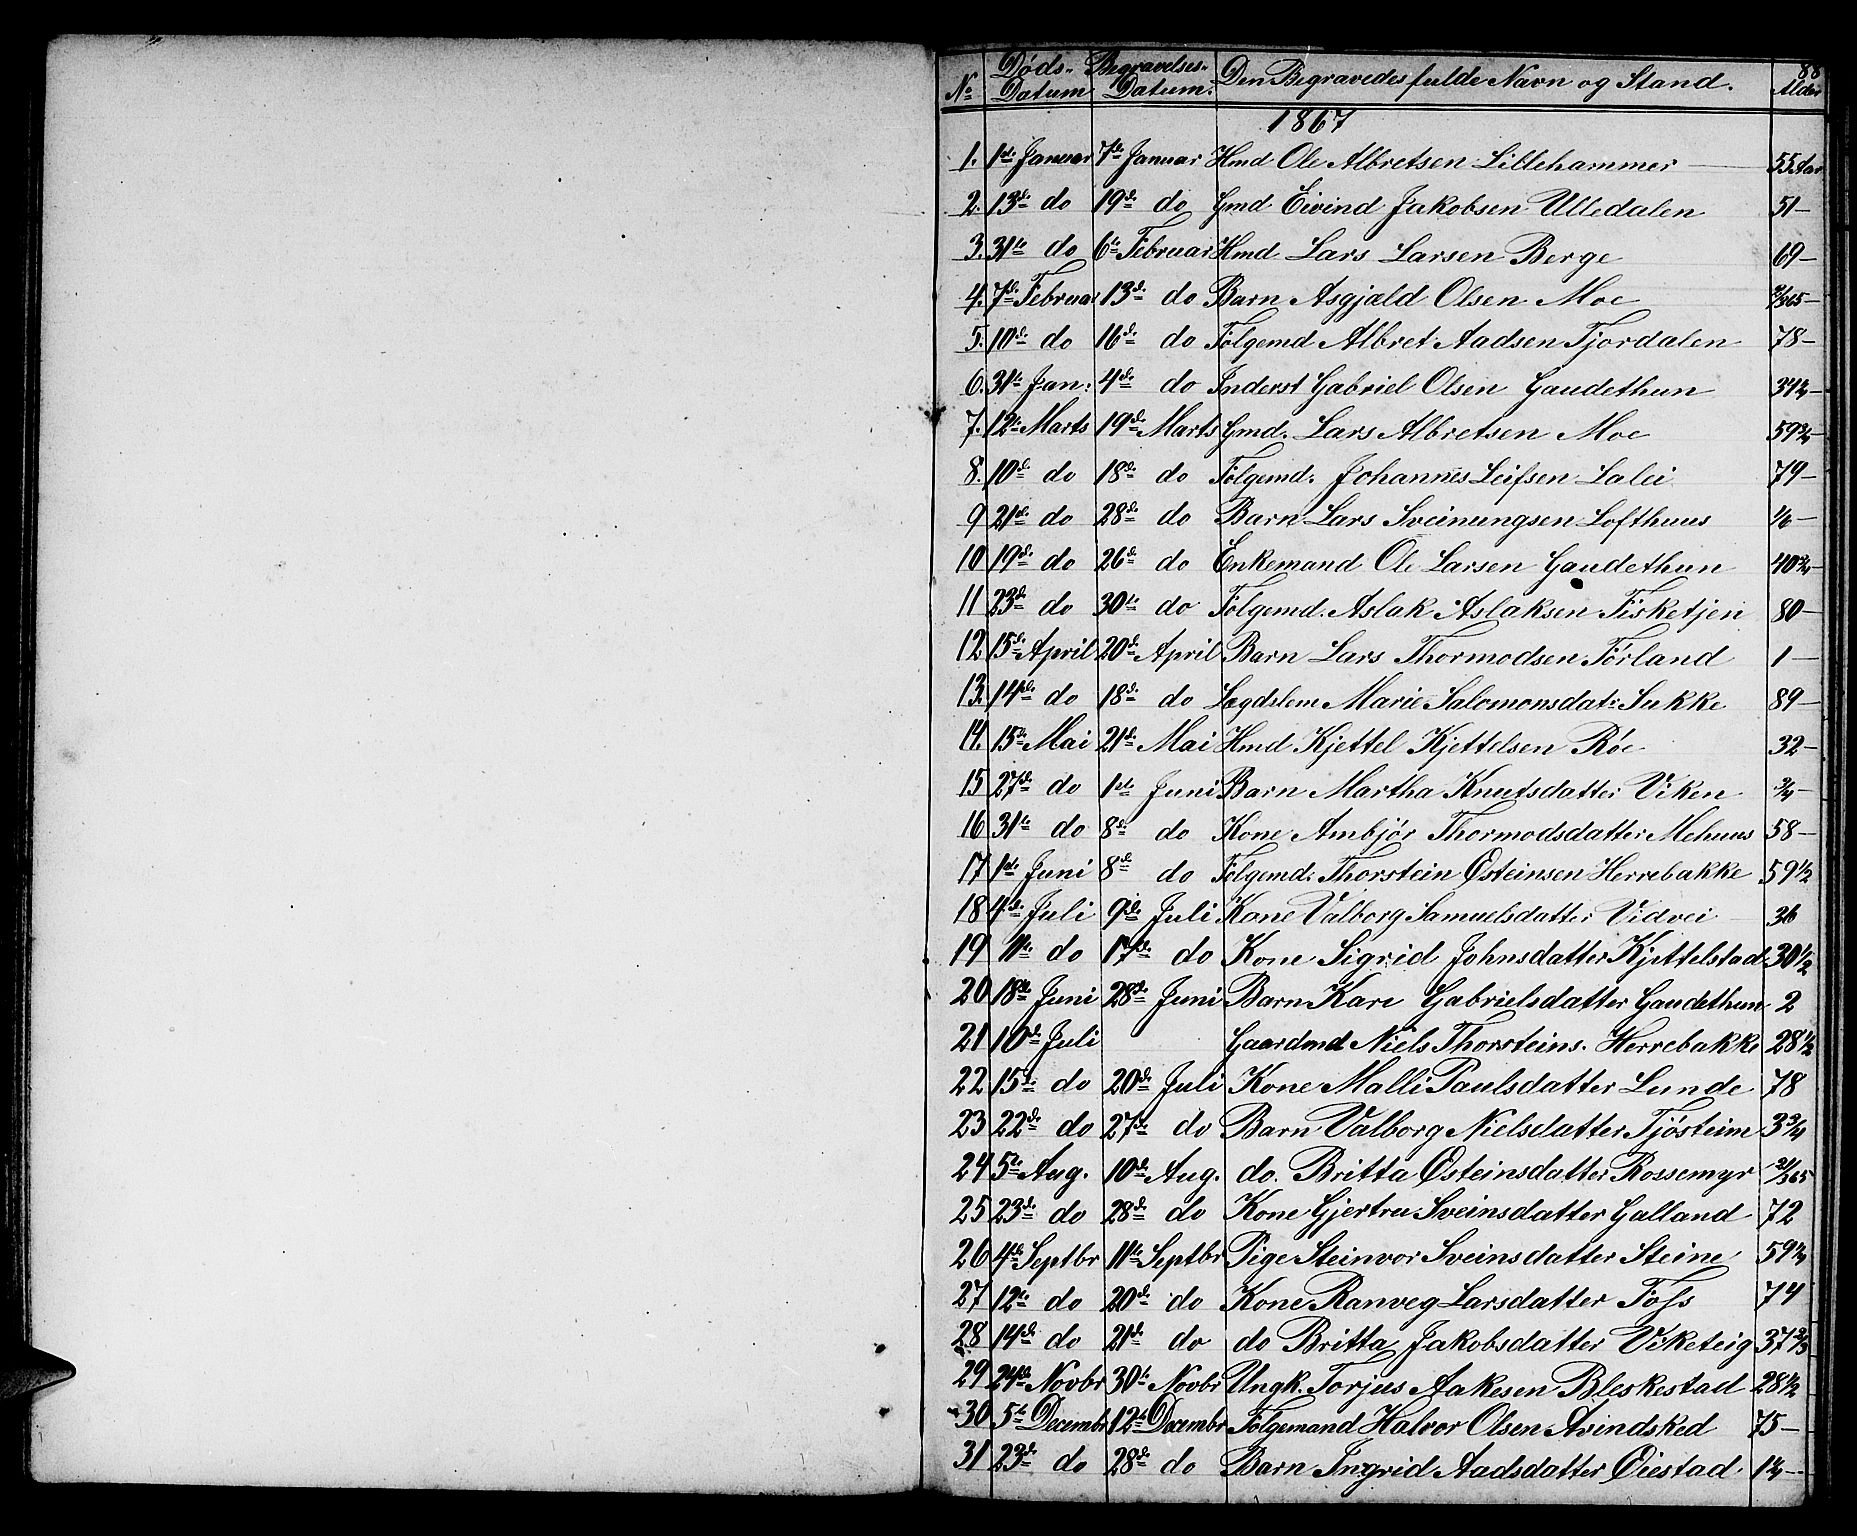 88
No Døds-Datum Begravelses-Datum. Den Begravedes fulde Navn og Stand. Alder
1867
1. 1ste Januar 7de Januar Hmd Ole Albretsen Lillehammer 55 Aar
2. 13de do 19de do Gmd Eivind Jakobsen Ulledalen 51-
3. 31te do 6te Februar Hmd Lars Larsen Berge 69-
4. 7de Februar 13de do Barn Asgjæld Olsen Moe /365-
5. 10de do 16de do Følgemd Albret Aadsen Fjordalen 78-
6. 31te Jan: 4de do Inderst Gabriel Olsen Gaudethun
7. 12te Marts 19de Marts Gmd. Lars Albretsen Moe
8. 10de do 18de do Følgemd: Johannes Leifsen Lalei 79-
9 21de do 28de do Barn Lars Sveinungsen Lofthuus 1/6-
10 19de do 26de do Enkemand Ole Larsen Gaudethun
11 23de do 30te do Følgemd. Aslak Aslaksen Fisketjen 80-
12. 15de April 20de April Barn Lars Thormodsen Førland 1-
13. 14de do 18de do Lægdslem Marie Salomonsdat: Sukke 89-
14. 15de Mai 21de Mai Hmd Kjettel Kjettelsen Røe 32-
15 27de do 1ste Juni Barn Martha Knutsdatter Viken 3/4-
16 31te do 8de do Kone Ambjør Thormodsdatter Mehuus 58-
17 1ste Juni 8de do Følgemd: Thorstein Østeinsen Herrebakke 59 1/2
18 4de Juli 9de Juli Kone Valborg Samuelsdatter Vidvei 36
19 11te do 17de do Kone Sigrid Johnsdatter Kjettelstad 30 1/2
20 18de Juni 28de Juni Barn Kari Gabrielsdatter Gaudethun 2
21 10de Juli Gaardmd Niels Thorsteins. Herrebakke 28 1/2
22 15de do 20de Juli Kone Malli Paulsdatter Lunde 78
23 22de do 27de do Barn Valborg Nielsdatter Tjøsteim 3 3/4
24 5te Aug. 10de Aug. do. Britta Østeinsdatter Rossemyr 21/365
25 23de do 28de do Kone Gjertru Sveinsdatter Galland 72
26 4de Septbr 11te Septbr Pige Steinvor Sveinsdatter Steine 59 3/4
27 12te do 20de do Kone Ranveg Larsdatter Foss 74
28 14de do 21de do do Britta Jakobsdatter Viketeig 37 2/3
29 24de Novbr 30te Novbr Ungk. Torjus Aakesen Bleskestad 28 1/2
30 5te Decembr 12te Decembr Følgemand Halvor Olsen Avindsked 75-
31 23de do 28de do Barn Ingrid Aadsdatter Øiestad.